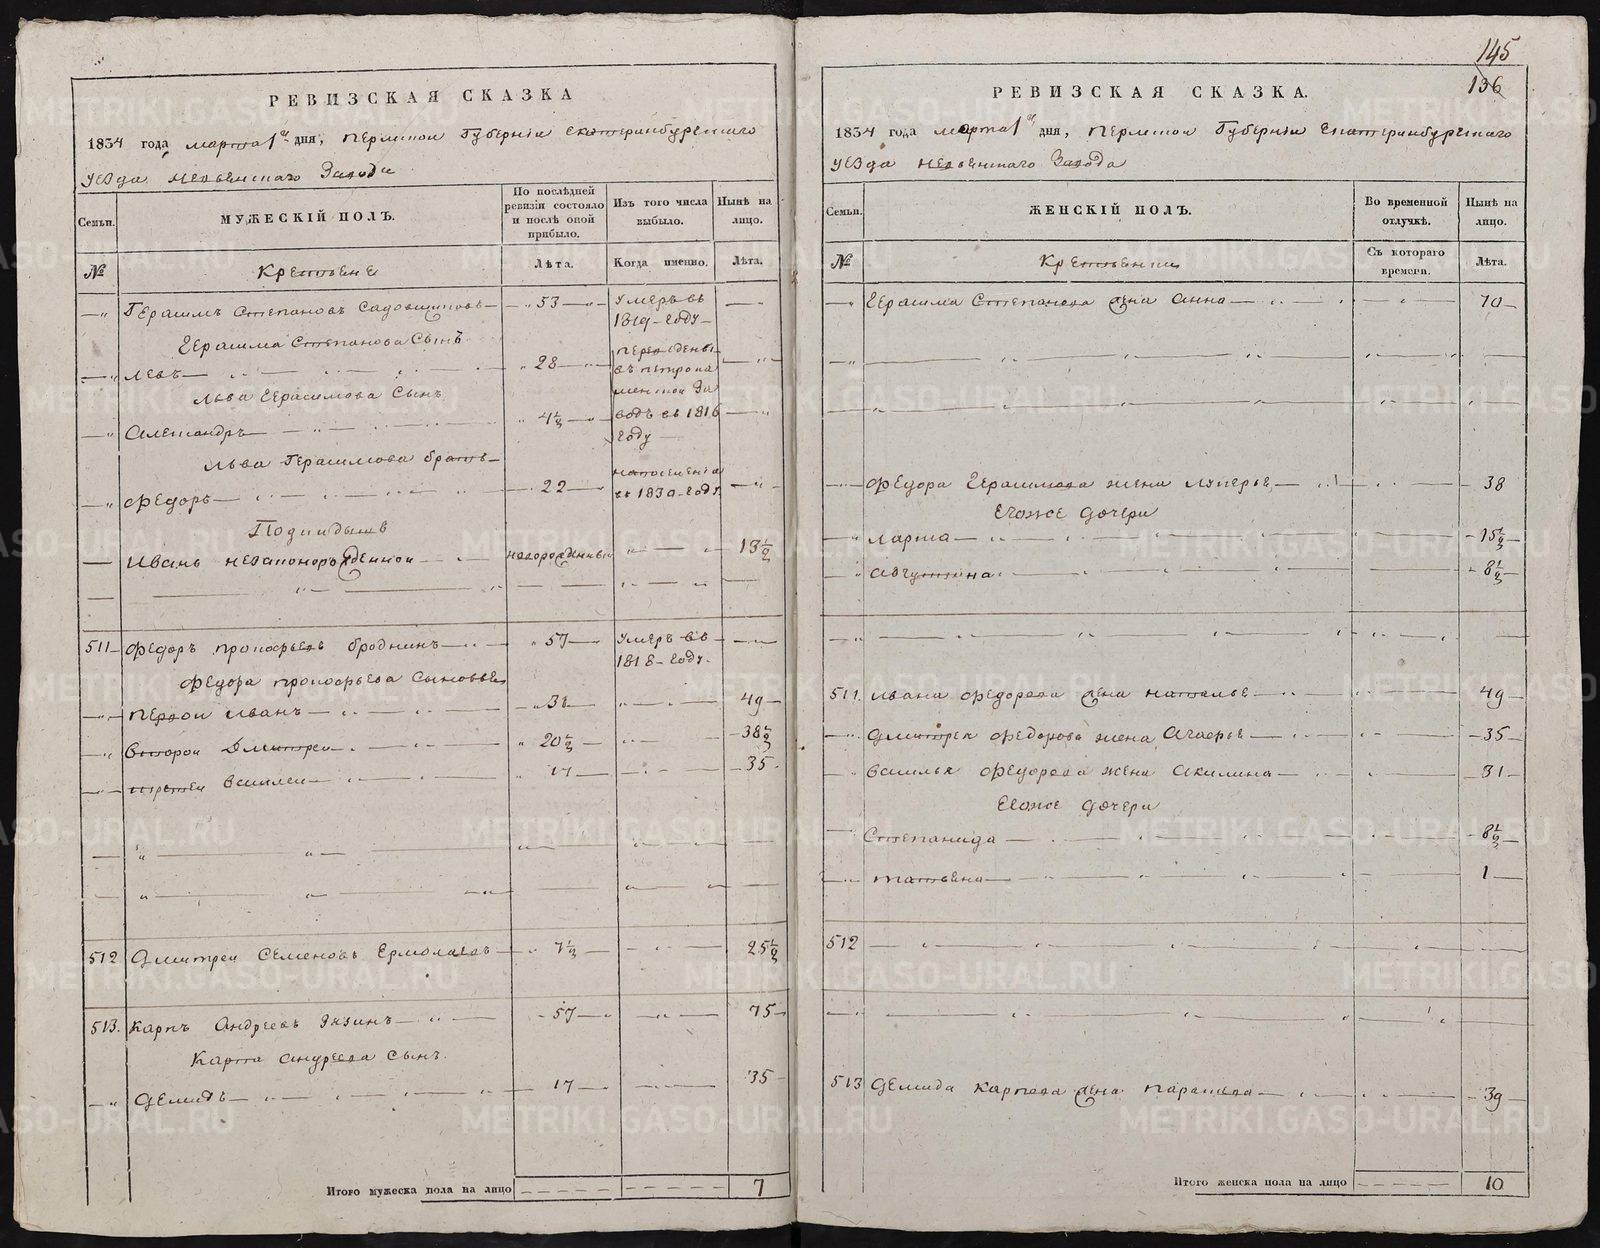 145
136
РЕВИЗСКАЯ СКАЗКА
1834 года марта 1 дня, Пермской Губернии Екатеринбургского
уезда Невьянского Завода
Семьи.
МУЖЕСКІЙ ПОЛЪ.
По послѣдней ревизіи состояло и послѣ оной прибыло.
Изъ того числа выбыло.
Нынѣ на лицо.
№
Лѣта.
Когда именно.
Лѣта.
Герасимъ Степановъ — 53 — умеръ въ 1819 году
Герасима Степанова сынъ
Левъ — 28 — въ 1816 году
Льва Герасимова сынъ
Александръ — 4½
Льва Герасимова братъ
Федоръ — 22 — въ 1830 году
Подкидышъ
Иванъ — новорожденный — 13½
511 Федоръ Прокофьевъ Броднинъ — 57 — умеръ въ 1818 году
Федора Прокофьева сыновья
первой Иванъ — 31 — 49
второй Дмитрей — 20½ — 38½
третей Василей — 17 — 35
512 Дмитрей Семеновъ Ермолаевъ — 7½ — 25½
513. Карпъ Андреевъ — 57 — 75
Карпа Андреева сынъ
Демидъ — 17 — 35
Итого мужеска пола на лицо 7
РЕВИЗСКАЯ СКАЗКА.
1834 года марта 1 дня, Пермской Губернии Екатеринбургского
уезда Невьянского Завода
Семьи.
ЖЕНСКІЙ ПОЛЪ.
Во временной отлучкѣ.
Нынѣ на лицо.
№
Съ котораго времени.
Лѣта.
Герасима Степанова жена Анна — 70
Федора Герасимова жена Лукерья — 38
Егоже дочери
Марфа — 15½
Августина — 8½
511. Ивана Федорова жена Наталья — 49
Дмитрея Федорова жена Агафья — 35
Василья Федорова жена Акилина — 31
Егоже дочери
Степанида — 8½
Татьяна — 1
512
513 Демида Карпова жена — 39
Итого женска пола на лицо 10
METRIKI.GASO-URAL.RU